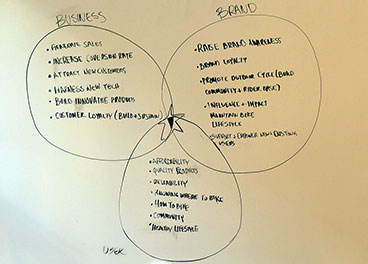 BUSINESS
• INCREASE COVERSION RATE
• ATTRACT NEW CUSTOMERS
• HARNESS NEW TECH
• BUILD INNOVATIVE PRODUCT
• CUSTOMER LOYALTY (BUILD + SUSTAIN)
BRAND
• RAISE BRAND AWARENESS
• BRAND LOYALTY
• PROMOTE OUTDOOR CYCLE (BUILD
COMMUNITY & RIDER BASE)
• INFLUENCE + IMPACT
MOUNTAIN BIKE
LIFESTYLE
SUPPORT & EMPOWER NEW & EXISTING
USERS
• AFFORDABILITY
• QUALITY PRODUCTS
• RELIABILITY
• KNOWING WHERE TO BIKE
• HOW TO BIKE
• COMMUNITY
• HEALTHY LIFESTYLE
USER